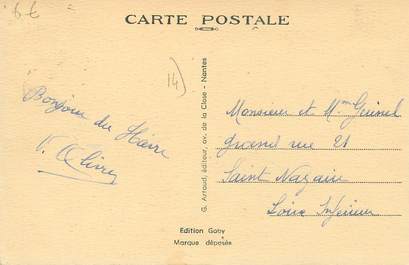 6 €
CARTE POSTALE
14)
Bonjour du Hâvre
V. Olivry
G. Artaud, éditeur, av. de la Close - Nantes
Monsieur et Mme
grand rue 21
Saint Nazaire
Loire Inférieur
Edition Gaby
Marque déposée